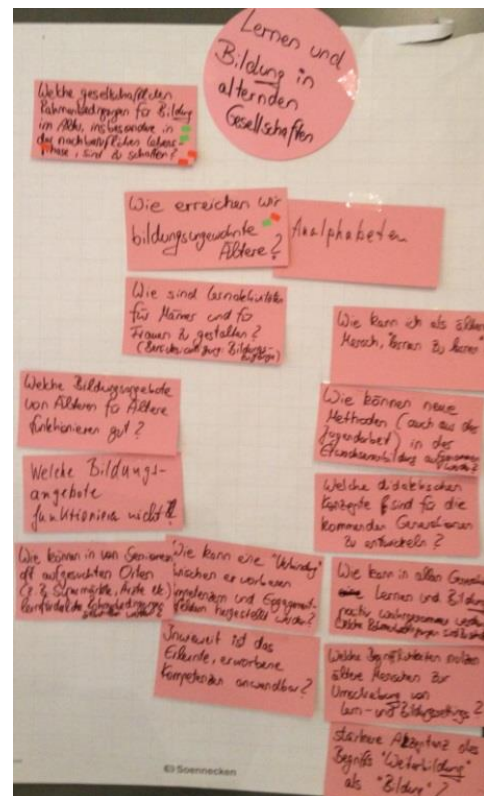 Lernen und
Bildung in
alternden
Gesellschaften
Welche gesellschaftlichen
Rahmenbedingungen für Bildung
im Alter, insbesondere in
der nachberuflichen Lebens-
phase, sind zu schaffen?
Wie erreichen wir
bildungsungewohnte
Ältere?
Analphabeten
Wie sind Lernaktivitäten
für Männer und für
Frauen zu gestalten?
Wie kann ich als älterer
Mensch, lernen zu lernen
Welche Bildungsangebote
von Älteren für Ältere
funktionieren gut?
Wie können neue
Methoden (auch aus der
Jugendarbeit) in der
Erwachsenenbildung aufgenommen
werden?
Welche Bildungs-
angebote
funktionieren nicht?
Welche didaktischen
Konzepte sind für die
kommenden Generationen
zu entwickeln?
Wie können in von Senioren
oft aufgesuchten Orten
(z.B. Supermärkte, Ärzte etc)
Wie kann eine "Verbindung"
zwischen erworbenen
Kompetenzen und Engagement-
feldern hergestellt werden?
Wie kann in allen
Lernen und Bildung
positiv wahrgenommen werden
Inwieweit ist das
Erlernte, erworbene
Kompetenzen anwendbar?
Welche Begrifflichkeiten nutzen
ältere Menschen zur
Umschreibung von
Lern- und Bildungssettings?
stärkere Akzeptanz des
Begriffs "Weiterbildung"
als "Bildung"?
Soennecken